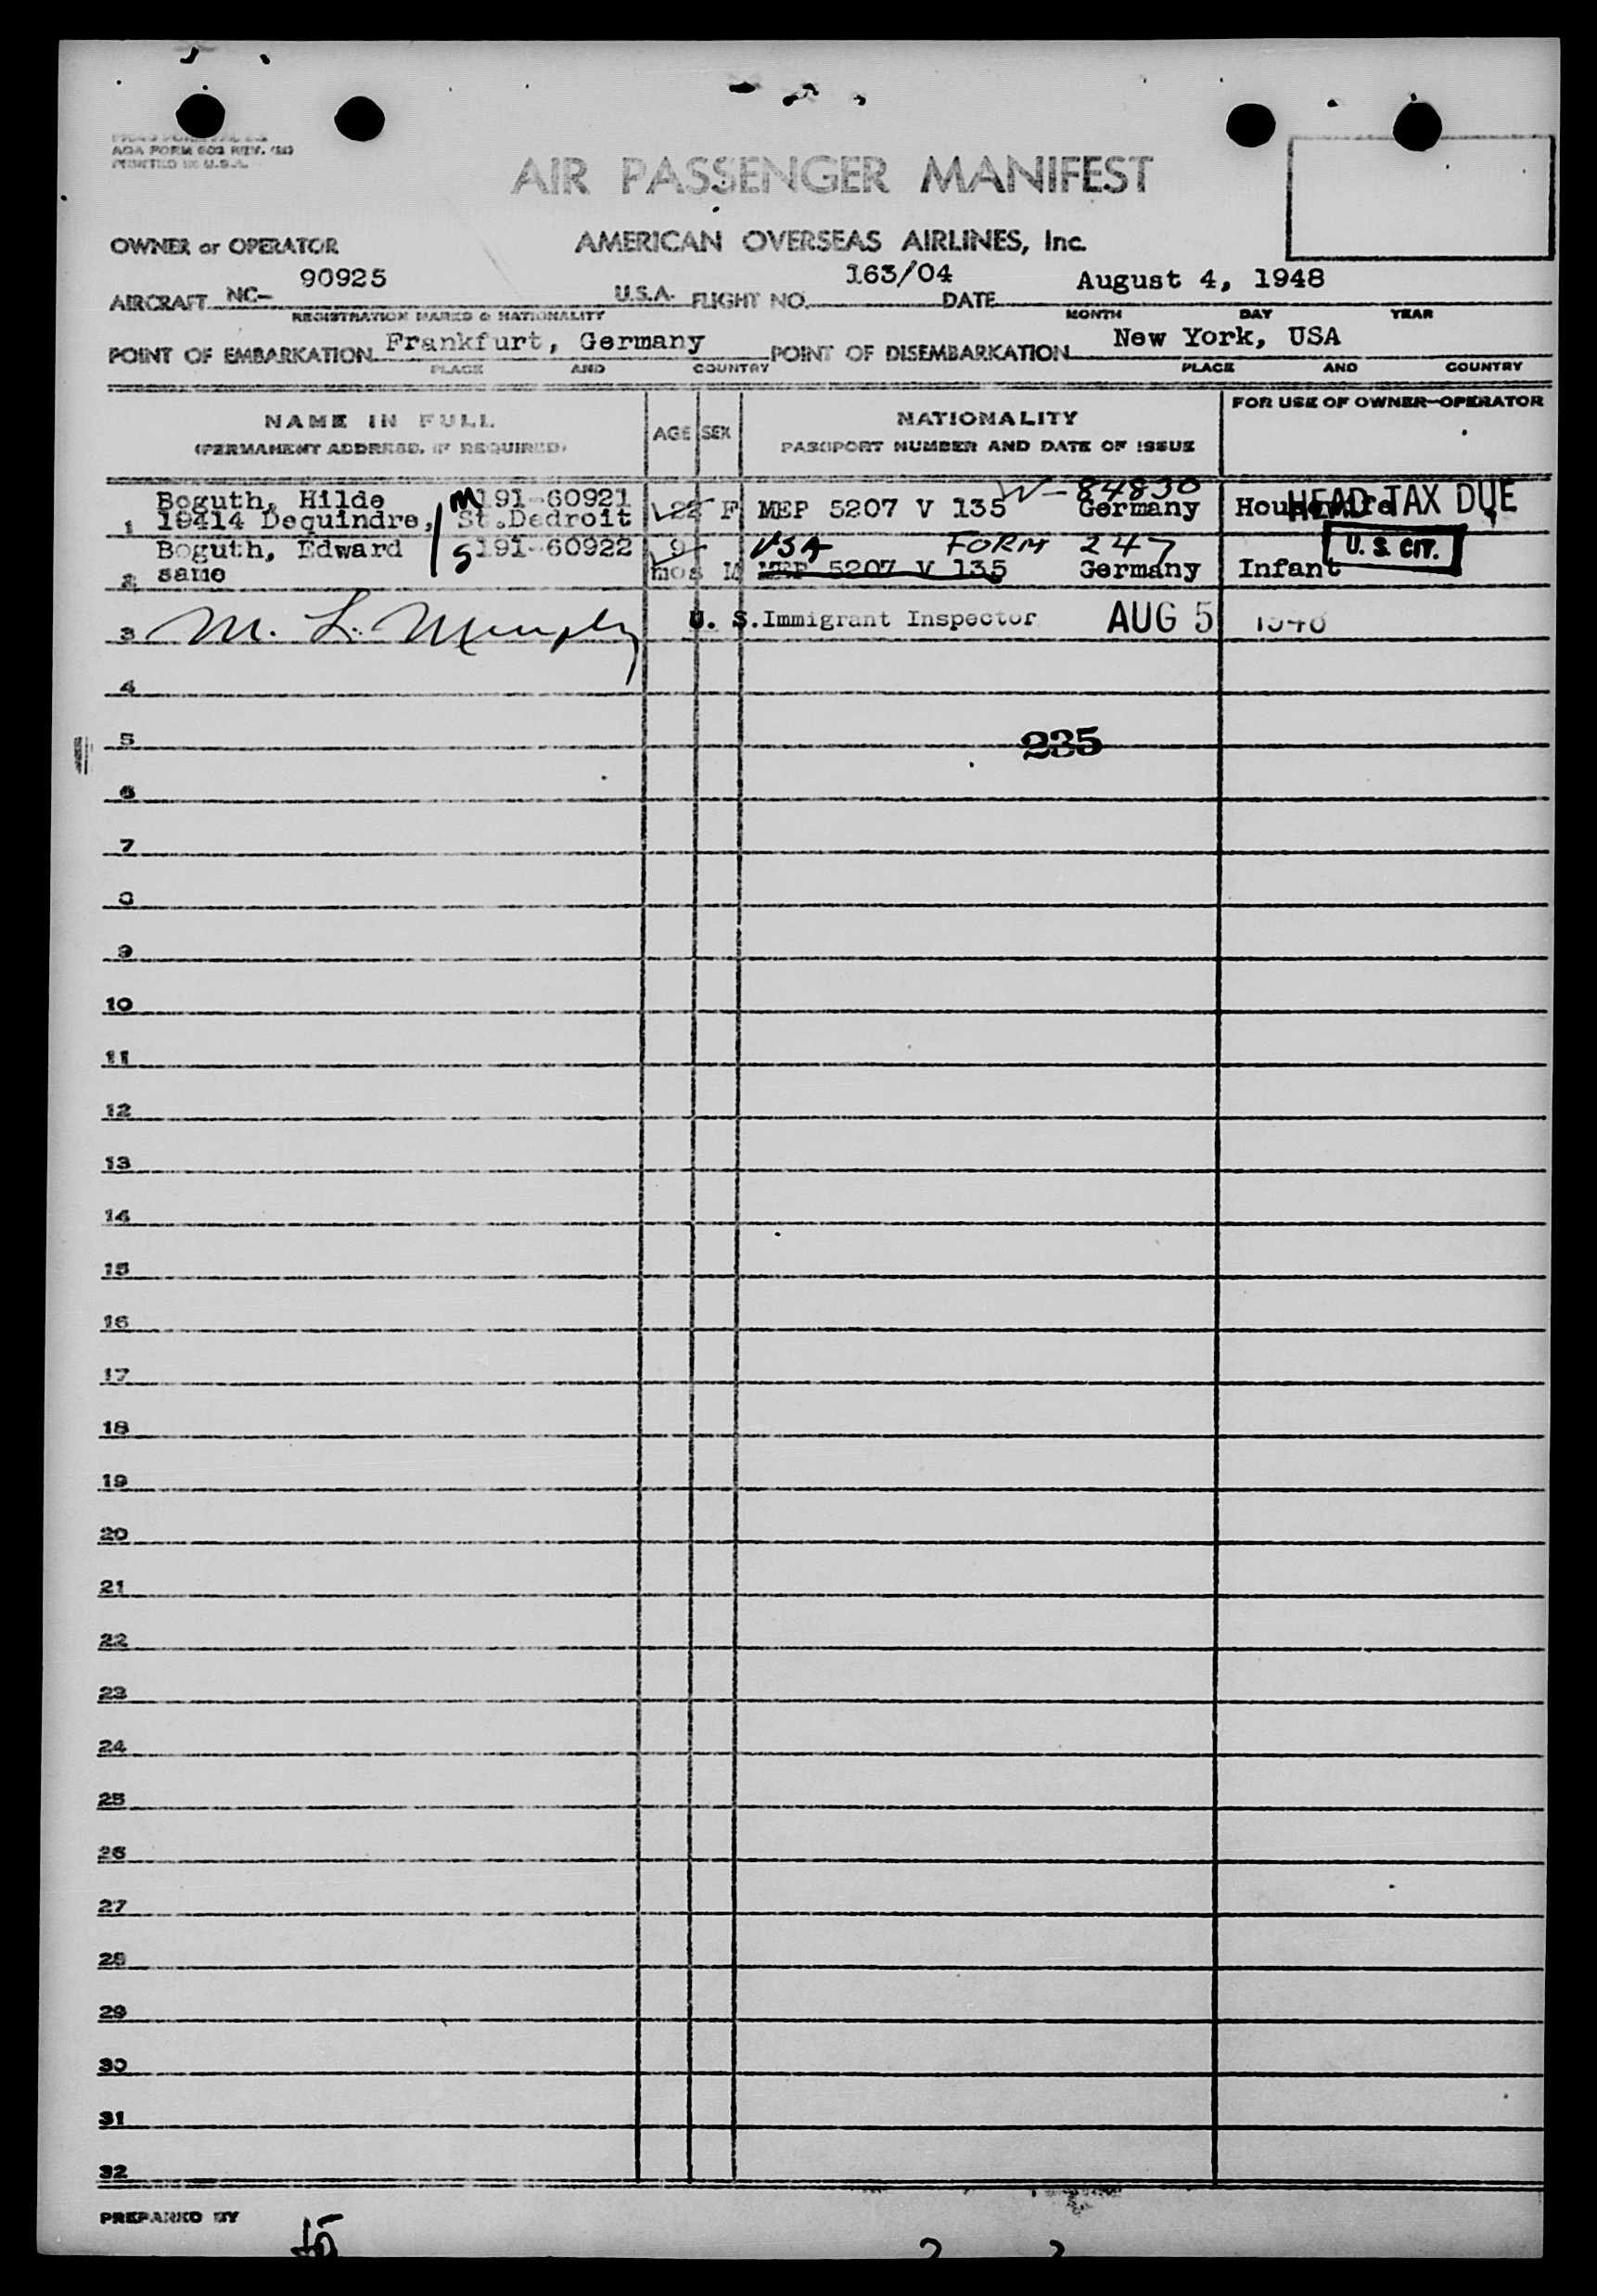 AOA FORM 603 REV.
PRINTED IN U.S.A.
AIR PASSENGER MANIFEST
OWNER or OPERATOR AMERICAN OVERSEAS AIRLINES, Inc.
AIRCRAFT NC- 90925 U.S.A. FLIGHT NO. 163/04 DATE August 4, 1948
REGISTRATION MARKS & NATIONALITY MONTH DAY YEAR
POINT OF EMBARKATION Frankfurt, Germany POINT OF DISEMBARKATION New York, USA
PLACE AND COUNTRY PLACE AND COUNTRY
NAME IN FULL AGE SEX NATIONALITY FOR USE OF OWNER-OPERATOR
(PERMANENT ADDRESS, IF REQUIRED) PASSPORT NUMBER AND DATE OF ISSUE
Boguth, Hilde M 191-60921 W-84830
1 19414 Dequindre, St.Dedroit 22 F MEP 5207 V 135 Germany Housewife HEAD TAX DUE
Boguth, Edward S 191-60922 9 USA FORM 247 U. S. CIT.
2 same mos M MEP 5207 V 135 Germany Infant
3 M. L. Murphy U. S. Immigrant Inspector AUG 5 1948
4
5 235
6
7
8
9
10
11
12
13
14
15
16
17
18
19
20
21
22
23
24
25
26
27
28
29
30
31
32
PREPARED BY